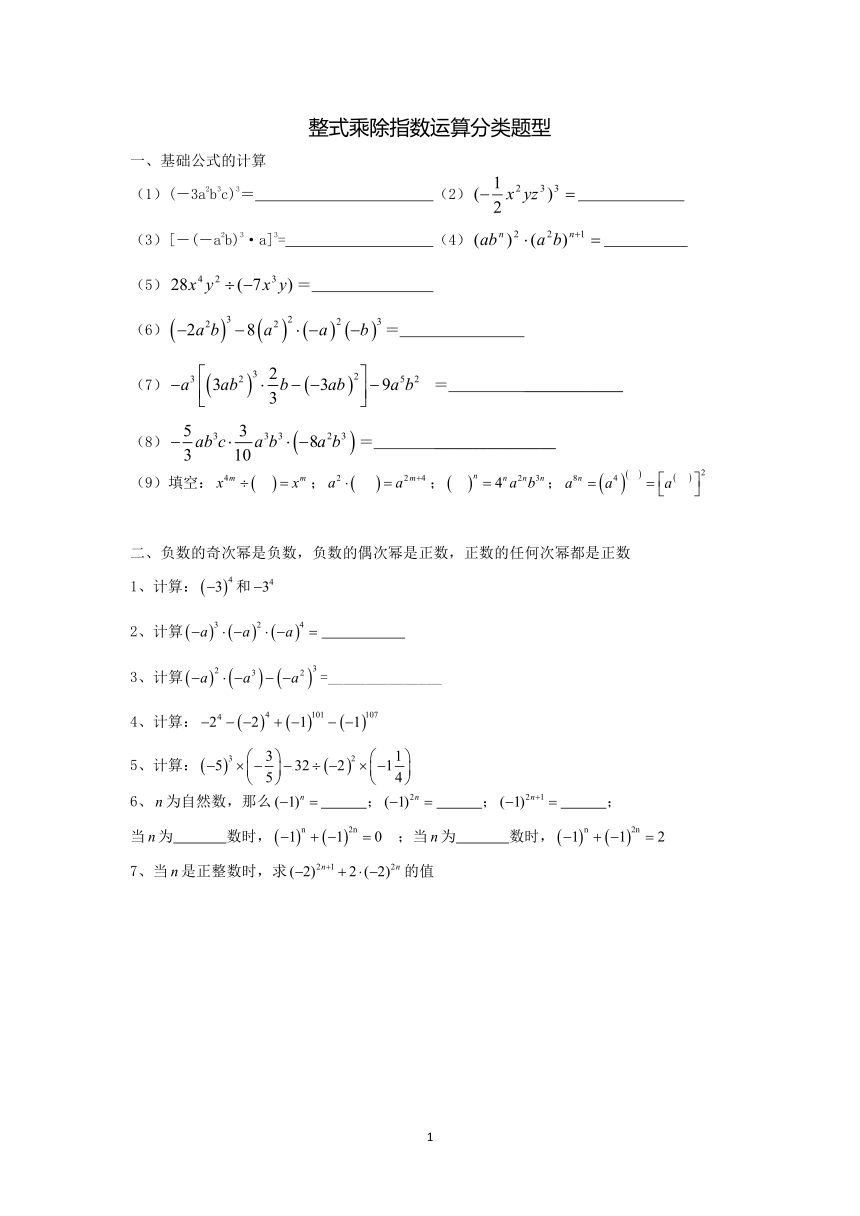 整式乘除指数运算分类题型
一、基础公式的计算
（1）(－3a²b³c)³＝ （2）$(-\frac{1}{2}x^2yz^3)^3=$
（3）[－(－a²b)³·a]³= （4）$(ab^n)^2\cdot(a^2b)^{n+1}=$
（5）$28x^4y^2\div(-7x^3y)$＝
（6）$\left(-2a^2b\right)^3-8\left(a^2\right)^2\cdot\left(-a\right)^2\left(-b\right)^3$＝
（7）$-a^3\left[\left(3ab^2\right)^3\cdot\frac{2}{3}b-\left(-3ab\right)^2\right]-9a^5b^2$ ＝
（8）$-\frac{5}{3}ab^3c\cdot\frac{3}{10}a^3b^3\cdot\left(-8a^2b^3\right)$＝
（9）填空：$x^{4m}\div(\ \ )=x^m$；$a^2\cdot(\ \ )=a^{2m+4}$；$(\ \ )^n=4^na^{2n}b^{3n}$；$a^{8n}=\left(a^4\right)^{(\ \ )}=\left[a^{(\ \ )}\right]^2$
二、负数的奇次幂是负数，负数的偶次幂是正数，正数的任何次幂都是正数
1、计算：$\left(-3\right)^4$和$-3^4$
2、计算$\left(-a\right)^3\cdot\left(-a\right)^2\cdot\left(-a\right)^4=$
3、计算$\left(-a\right)^2\cdot\left(-a^3\right)-\left(-a^2\right)^3$=_______________
4、计算：$-2^4-\left(-2\right)^4+\left(-1\right)^{101}-\left(-1\right)^{107}$
5、计算：$\left(-5\right)^3\times\left(-\frac{3}{5}\right)-32\div\left(-2\right)^2\times\left(-1\frac{1}{4}\right)$
6、$n$为自然数，那么$(-1)^n=$ ______；$(-1)^{2n}=$ ______；$(-1)^{2n+1}=$ ______；
当$n$为______数时，$\left(-1\right)^n+\left(-1\right)^{2n}=0$ ；当$n$为______数时，$\left(-1\right)^n+\left(-1\right)^{2n}=2$
7、当$n$是正整数时，求$(-2)^{2n+1}+2\cdot(-2)^{2n}$的值
1